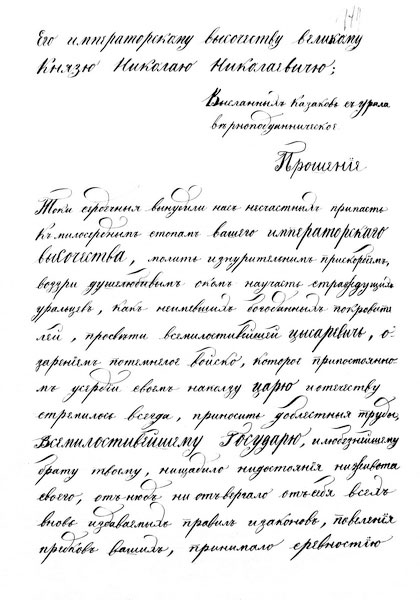 Его императорскому высочеству великому
Князю Николаю Николаевичю;
Высланныхъ Казаковъ съ урала
вѣрноподданническое
Прошенiе
Токи сердечныя вынудили насъ несчастныхъ припасть
къ милосерднымъ стопамъ вашего императорскаго
высочества, молить изнурительнымъ прискорбiемъ,
воззри душелюбивымъ окомъ на участь страждущихъ
уральцевъ, какъ неимевшихъ богоданныхъ покровите
лей, просвѣти всемилостивѣйшей цысаревичь, о-
зарѣнiемъ потемнелое войско, которое припостоянно-
мъ усердiи своемъ напользу царю иотечеству
стремилось всегда, приносить доблестныя труды,
Всемилостивѣйшему Государю, илюбезнѣйшему
брату твоему, нищадило нидостоянiя ниживота
своего, отъ нюдъ ни отъвергало отъ себя всемъ
вновь издаваемыхъ правилъ изаконовъ, повеленiя
предковъ вашихъ, принимало сревностiю